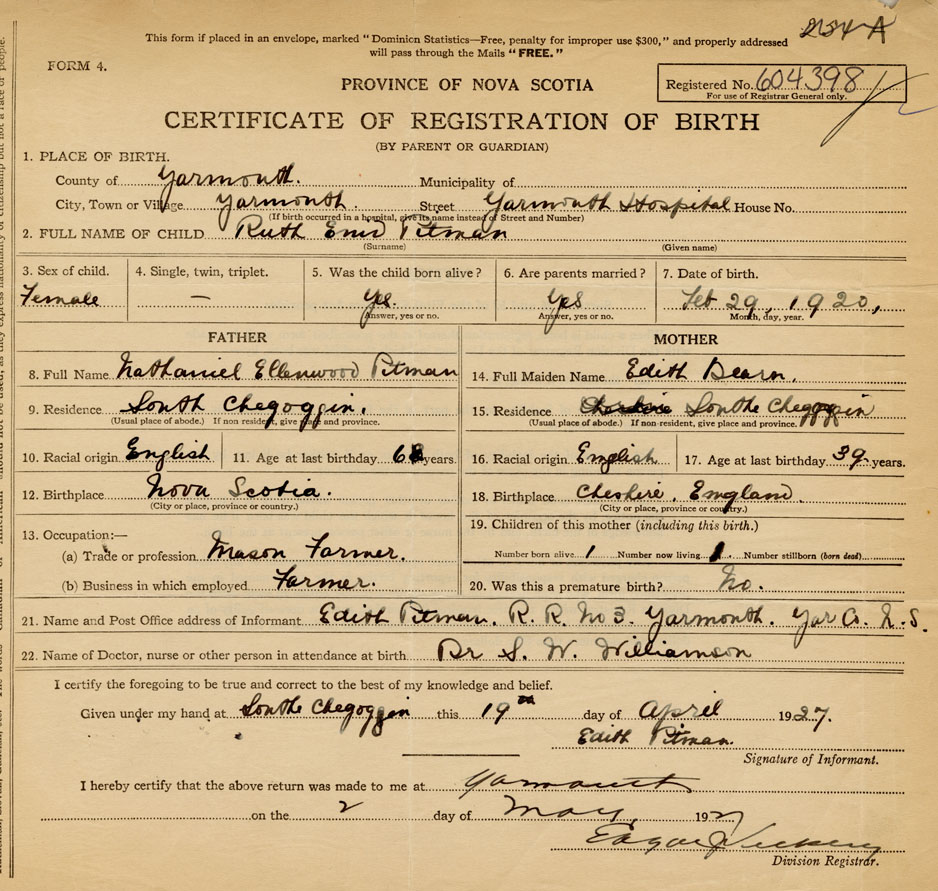 234-A
This form if placed in an envelope, marked "Dominion Statistics—Free, penalty for improper use $300," and properly addressed
will pass through the Mails "FREE."
FORM 4.
PROVINCE OF NOVA SCOTIA
Registered No. 604398
For use of Registrar General only.
CERTIFICATE OF REGISTRATION OF BIRTH
(BY PARENT OR GUARDIAN)
1. PLACE OF BIRTH.
County of Yarmouth. Municipality of
City, Town or Village Yarmouth. Street Yarmouth Hospital House No.
(If birth occurred in a hospital, give its name instead of Street and Number)
2. FULL NAME OF CHILD Ruth Enid Pitman
(Surname) (Given name)
3. Sex of child. 4. Single, twin, triplet. 5. Was the child born alive? 6. Are parents married? 7. Date of birth.
Female — Yes. Yes Feb 29, 1920,
Answer, yes or no. Answer, yes or no. Month, day, year.
FATHER MOTHER
8. Full Name Nathaniel Ellenwood Pitman 14. Full Maiden Name Edith Dearn.
9. Residence South Chegoggin. 15. Residence Southe Chegoggin
(Usual place of abode.) If non resident, give place and province. (Usual place of abode.) If non-resident, give place and province.
10. Racial origin English 11. Age at last birthday years. 16. Racial origin English 17. Age at last birthday 39 years.
12. Birthplace Nova Scotia. 18. Birthplace Cheshire, England.
(City or place, province or country.) (City or place, province or country.)
13. Occupation:— 19. Children of this mother (including this birth.)
(a) Trade or profession Mason Farmer. Number born alive 1 Number now living 1. Number stillborn (born dead)
(b) Business in which employed Farmer. 20. Was this a premature birth? No.
21. Name and Post Office address of Informant Edith Pitman. R. R. No 3. Yarmouth. Yar Co. N.S.
22. Name of Doctor, nurse or other person in attendance at birth Dr S. W. Williamson
I certify the foregoing to be true and correct to the best of my knowledge and belief.
Given under my hand at Southe Chegoggin this 19th day of April 1927.
Edith Pitman.
Signature of Informant.
I hereby certify that the above return was made to me at Yarmouth
on the 2 day of May, 1927
Edgar J
Division Registrar.